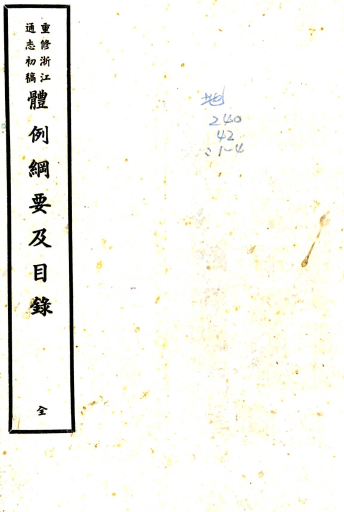 重修浙江
通志初稿
體例綱要及目錄
全
地
240
42
:1-4